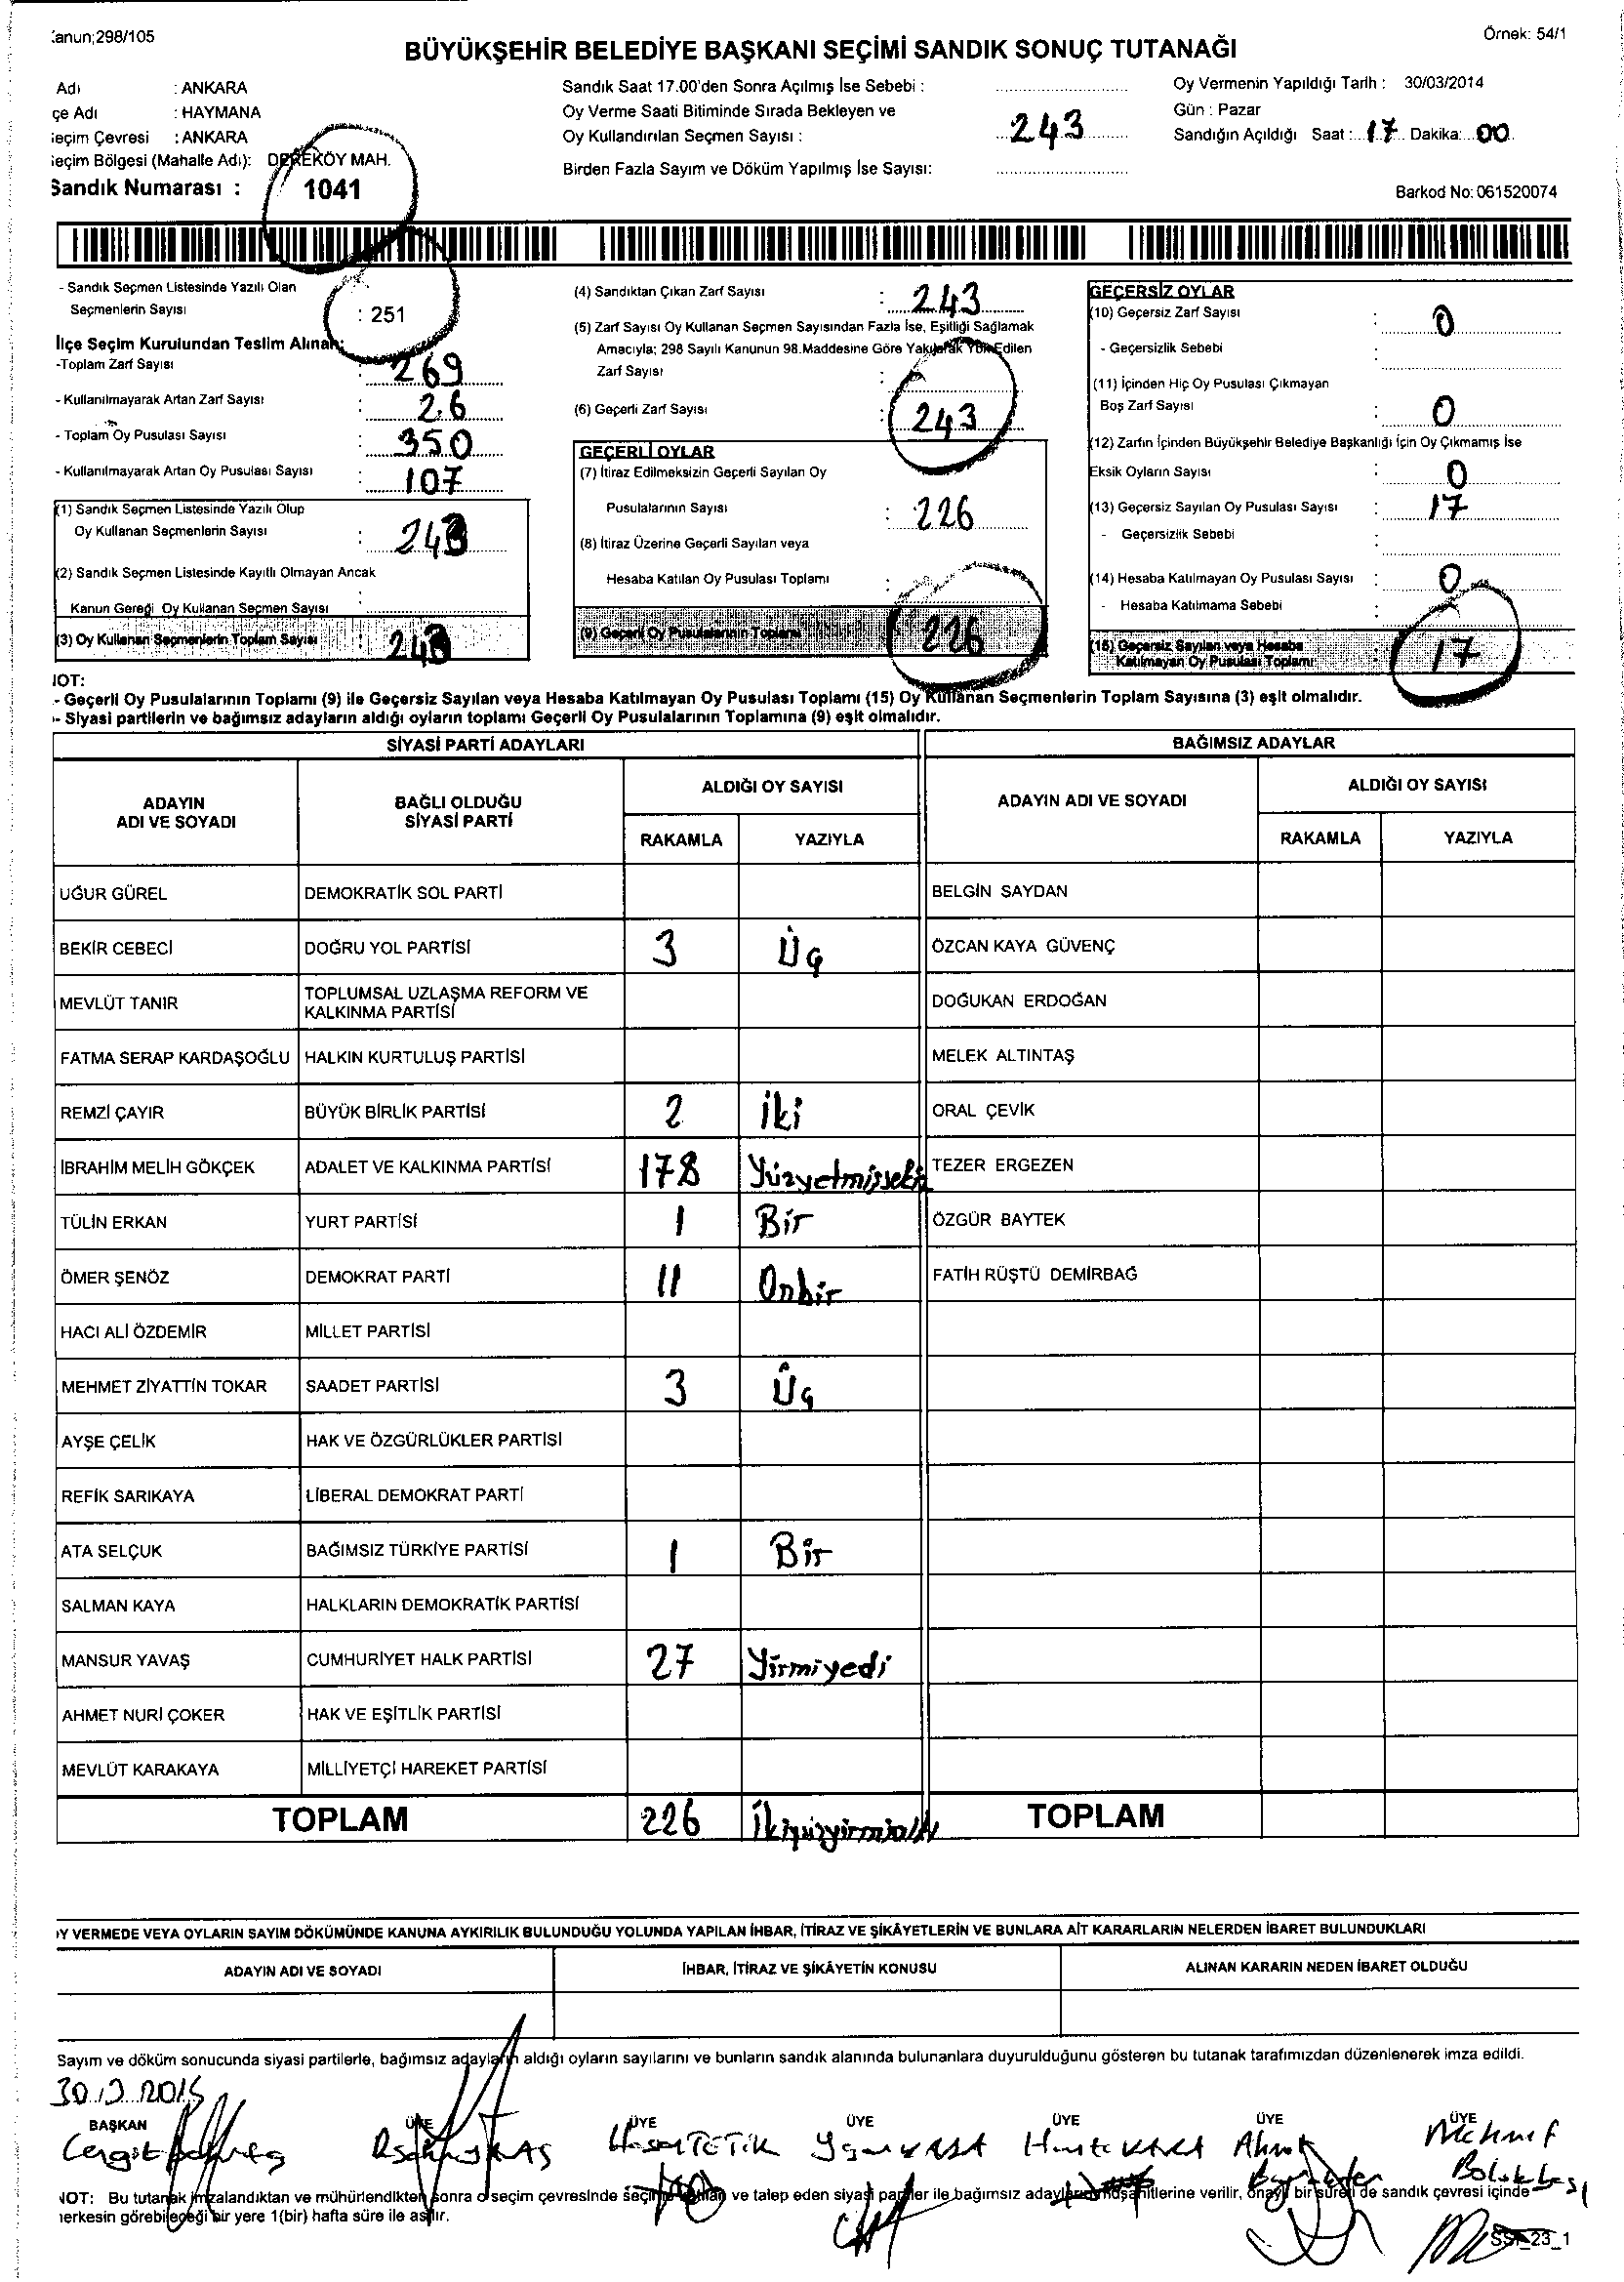 anun;298/105
Örnek: 54/1
BÜYÜKŞEHİR BELEDİYE BAŞKANI SEÇİMİ SANDIK SONUÇ TUTANAĞI
Adı : ANKARA
çe Adı : HAYMANA
eçim Çevresi : ANKARA
eçim Bölgesi (Mahalle Adı): DEREKÖY MAH.
Sandık Numarası : 1041
Sandık Saat 17.00'den Sonra Açılmış İse Sebebi :
Oy Verme Saati Bitiminde Sırada Bekleyen ve
Oy Kullandırılan Seçmen Sayısı : 243
Birden Fazla Sayım ve Döküm Yapılmış İse Sayısı:
Oy Vermenin Yapıldığı Tarih : 30/03/2014
Gün : Pazar
Sandığın Açıldığı Saat : 17 Dakika: 00
Barkod No: 061520074
- Sandık Seçmen Listesinde Yazılı Olan
Seçmenlerin Sayısı : 251
İlçe Seçim Kurulundan Teslim Alınan:
-Toplam Zarf Sayısı : 269
- Kullanılmayarak Artan Zarf Sayısı : 26
- Toplam Oy Pusulası Sayısı : 350
- Kullanılmayarak Artan Oy Pusulası Sayısı : 107
(1) Sandık Seçmen Listesinde Yazılı Olup
Oy Kullanan Seçmenlerin Sayısı : 243
(2) Sandık Seçmen Listesinde Kayıtlı Olmayan Ancak
Kanun Gereği Oy Kullanan Seçmen Sayısı :
(3) Oy Kullanan Seçmenlerin Toplam Sayısı : 243
(4) Sandıktan Çıkan Zarf Sayısı : 243
(5) Zarf Sayısı Oy Kullanan Seçmen Sayısından Fazla İse, Eşitliği Sağlamak
Amacıyla; 298 Sayılı Kanunun 98.Maddesine Göre Yakılarak Yok Edilen
Zarf Sayısı :
(6) Geçerli Zarf Sayısı : 243
GEÇERLİ OYLAR
(7) İtiraz Edilmeksizin Geçerli Sayılan Oy
Pusulalarının Sayısı : 226
(8) İtiraz Üzerine Geçerli Sayılan veya
Hesaba Katılan Oy Pusulası Toplamı :
(9) Geçerli Oy Pusulalarının Toplamı 226
GEÇERSİZ OYLAR
(10) Geçersiz Zarf Sayısı : 0
- Geçersizlik Sebebi :
(11) İçinden Hiç Oy Pusulası Çıkmayan
Boş Zarf Sayısı : 0
(12) Zarfın İçinden Büyükşehir Belediye Başkanlığı İçin Oy Çıkmamış İse
Eksik Oyların Sayısı : 0
(13) Geçersiz Sayılan Oy Pusulası Sayısı : 17
- Geçersizlik Sebebi :
(14) Hesaba Katılmayan Oy Pusulası Sayısı : 0
- Hesaba Katılmama Sebebi :
(15) Geçersiz Sayılan veya Hesaba
Katılmayan Oy Pusulası Toplamı : 17
NOT:
- Geçerli Oy Pusulalarının Toplamı (9) ile Geçersiz Sayılan veya Hesaba Katılmayan Oy Pusulası Toplamı (15) Oy Kullanan Seçmenlerin Toplam Sayısına (3) eşit olmalıdır.
- Siyasi partilerin ve bağımsız adayların aldığı oyların toplamı Geçerli Oy Pusulalarının Toplamına (9) eşit olmalıdır.
SİYASİ PARTİ ADAYLARI BAĞIMSIZ ADAYLAR
ADAYIN ADI VE SOYADI BAĞLI OLDUĞU SİYASİ PARTİ ALDIĞI OY SAYISI ADAYIN ADI VE SOYADI ALDIĞI OY SAYISI
RAKAMLA YAZIYLA RAKAMLA YAZIYLA
UĞUR GÜREL DEMOKRATİK SOL PARTİ BELGİN SAYDAN
BEKİR CEBECİ DOĞRU YOL PARTİSİ 3 Üç ÖZCAN KAYA GÜVENÇ
MEVLÜT TANIR TOPLUMSAL UZLAŞMA REFORM VE KALKINMA PARTİSİ DOĞUKAN ERDOĞAN
FATMA SERAP KARDAŞOĞLU HALKIN KURTULUŞ PARTİSİ MELEK ALTINTAŞ
REMZİ ÇAYIR BÜYÜK BİRLİK PARTİSİ 2 İki ORAL ÇEVİK
İBRAHİM MELİH GÖKÇEK ADALET VE KALKINMA PARTİSİ 178 Yüzyetmişsekiz TEZER ERGEZEN
TÜLİN ERKAN YURT PARTİSİ 1 Bir ÖZGÜR BAYTEK
ÖMER ŞENÖZ DEMOKRAT PARTİ 11 Onbir FATİH RÜŞTÜ DEMİRBAĞ
HACI ALİ ÖZDEMİR MİLLET PARTİSİ
MEHMET ZİYATTİN TOKAR SAADET PARTİSİ 3 Üç
AYŞE ÇELİK HAK VE ÖZGÜRLÜKLER PARTİSİ
REFİK SARIKAYA LİBERAL DEMOKRAT PARTİ
ATA SELÇUK BAĞIMSIZ TÜRKİYE PARTİSİ 1 Bir
SALMAN KAYA HALKLARIN DEMOKRATİK PARTİSİ
MANSUR YAVAŞ CUMHURİYET HALK PARTİSİ 27 Yirmiyedi
AHMET NURİ ÇOKER HAK VE EŞİTLİK PARTİSİ
MEVLÜT KARAKAYA MİLLİYETÇİ HAREKET PARTİSİ
TOPLAM 226 İkiyüzyirmialtı TOPLAM
Y VERMEDE VEYA OYLARIN SAYIM DÖKÜMÜNDE KANUNA AYKIRILIK BULUNDUĞU YOLUNDA YAPILAN İHBAR, İTİRAZ VE ŞİKÂYETLERİN VE BUNLARA AİT KARARLARIN NELERDEN İBARET BULUNDUKLARI
ADAYIN ADI VE SOYADI İHBAR, İTİRAZ VE ŞİKÂYETİN KONUSU ALINAN KARARIN NEDEN İBARET OLDUĞU
Sayım ve döküm sonucunda siyasi partilerle, bağımsız adayların aldığı oyların sayılarını ve bunların sandık alanında bulunanlara duyurulduğunu gösteren bu tutanak tarafımızdan düzenlenerek imza edildi.
BAŞKAN ÜYE ÜYE ÜYE ÜYE ÜYE ÜYE
Hasan TETİK Ahmet Mehmet
Bölükbaşı
NOT: Bu tutanak imzalandıktan ve mühürlendikten sonra o seçim çevresinde seçime katılan ve talep eden siyasi partiler ile bağımsız adayların müşahitlerine verilir, onaylı bir sureti de sandık çevresi içinde
herkesin görebileceği bir yere 1(bir) hafta süre ile asılır.
SST_23_1